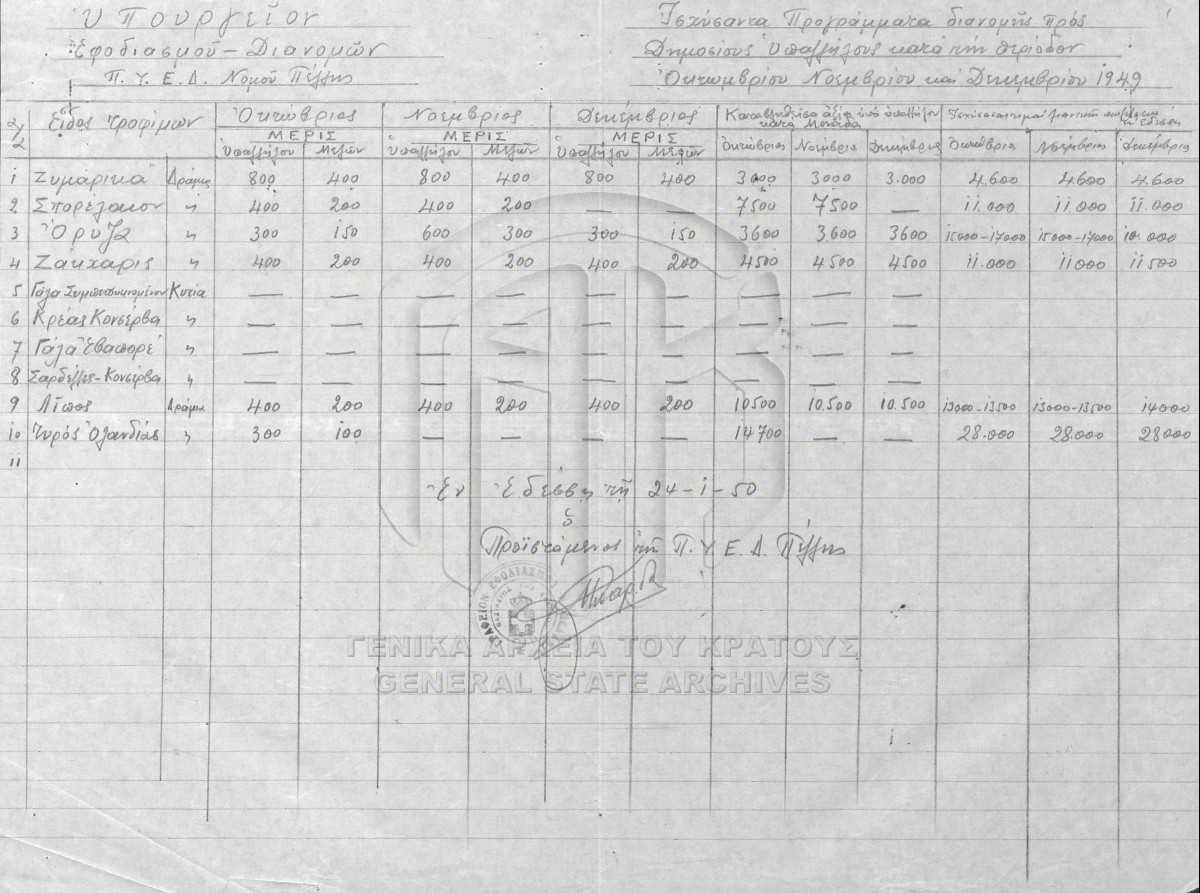 Ὑπουργεῖον
Ἐφοδιασμοῦ - Διανομῶν
Π. Υ. Ε. Δ. Νομοῦ Πέλλης
Ἰσχύσαντα Προγράμματα διανομῆς πρός
Δημοσίους Ὑπαλλήλους κατά τήν περίοδον
Ὀκτωμβρίου Νοεμβρίου καί Δεκεμβρίου 1949
α/α Εἶδος τροφίμων Ὀκτώβριος Νοέμβριος Δεκέμβριος Καταβληθεῖσα ἀξία ὑπό ὑπαλλήλου κατά Μονάδα
ΜΕΡΙΣ ΜΕΡΙΣ ΜΕΡΙΣ
Ὑπαλλήλου Μελῶν Ὑπαλλήλου Μελῶν Ὑπαλλήλου Μελῶν Ὀκτώβριος Νοέμβριος Δεκέμβριος Ὀκτώβριος Νοέμβριος Δεκέμβριος
1 Ζυμάρικα Δράμια 800 400 800 400 800 400 3000 3000 3.000 4.600 4.600 4.600
2 Σπορέλαιον 〃 400 200 400 200 — — 7500 7500 — 11.000 11.000 11.000
3 Ὄρυζα 〃 300 150 600 300 300 150 3600 3.600 3600 15000-17000 15000-17000 000
4 Ζάκχαρις 〃 400 200 400 200 400 200 4500 4500 4500 11.000 11000 11500
5 Γάλα Συμπεπυκνωμένον Κυτία — — — — — — — — —
6 Κρέας Κονσέρβα 〃 — — — — — — — — —
7 Γάλα Ἐβαπορέ 〃 — — — — — — — — —
8 Σαρδέλλες-Κονσέρβα 〃 — — — — — — — — —
9 Λίπος Δράμια 400 200 400 200 400 200 10500 10.500 10.500 13000-13500 13000-13500 14000
10 Τυρός Ὁλανδίας 〃 300 100 — — — — 14700 — — 28.000 28.000 28000
11
Ἐν Ἐδέσσῃ τῇ 24-1-50
ὁ
Προϊστάμενος τῆς Π. Υ. Ε. Δ. Πέλλης
ΓΕΝΙΚΑ ΑΡΧΕΙΑ ΤΟΥ ΚΡΑΤΟΥΣ
GENERAL STATE ARCHIVES